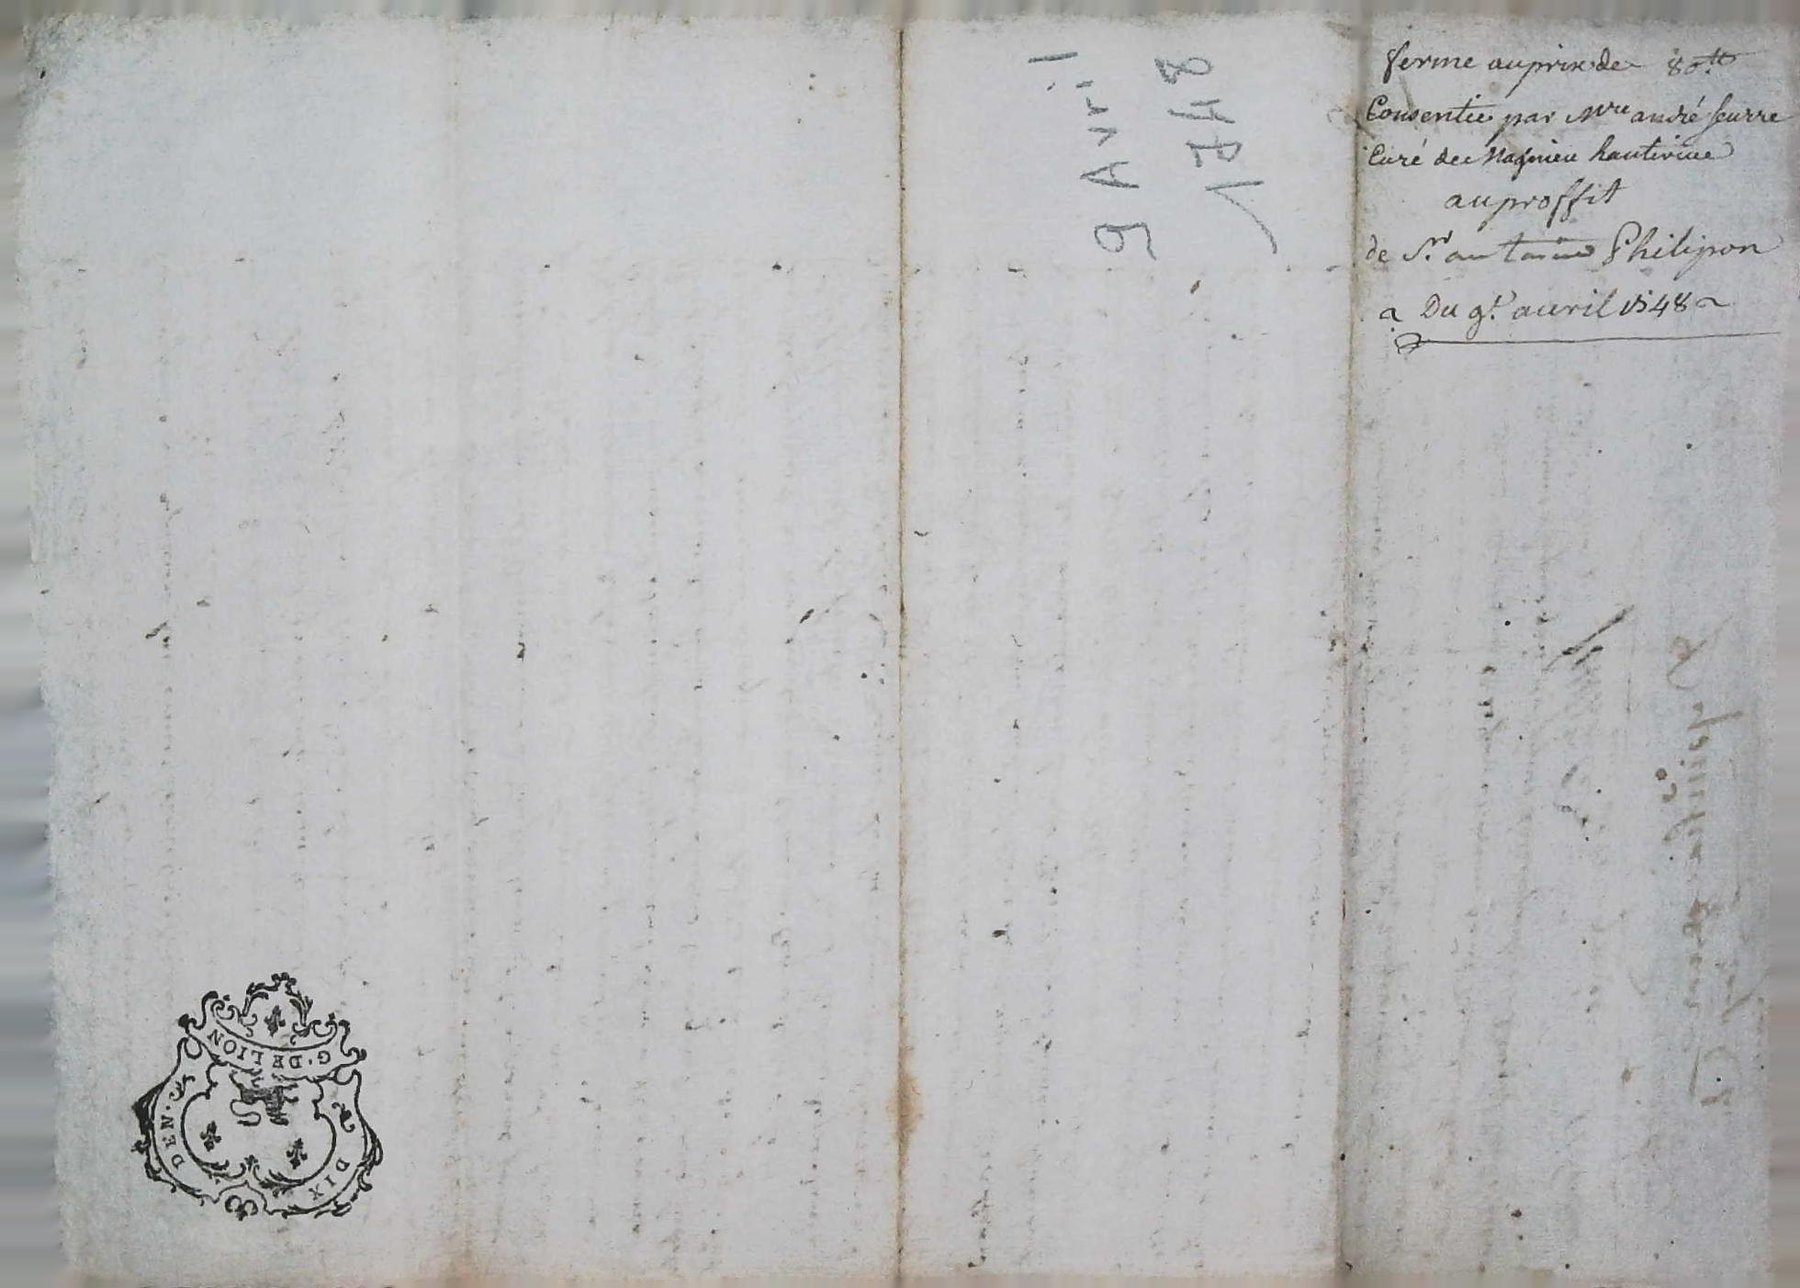 ferme au prix de 80tt
Consentie par Mre andré seurre
Curé de Magnieu hauterive
au proffit
de Sr. antoine Philipon
a Du 9e. avril 1748 a
9 Avril
1748
G. DE LION
DIX DEN.